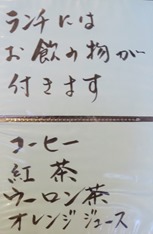 ランチには
お飲み物が
付きます
コーヒー
紅茶
ウーロン茶
オレンジジュース